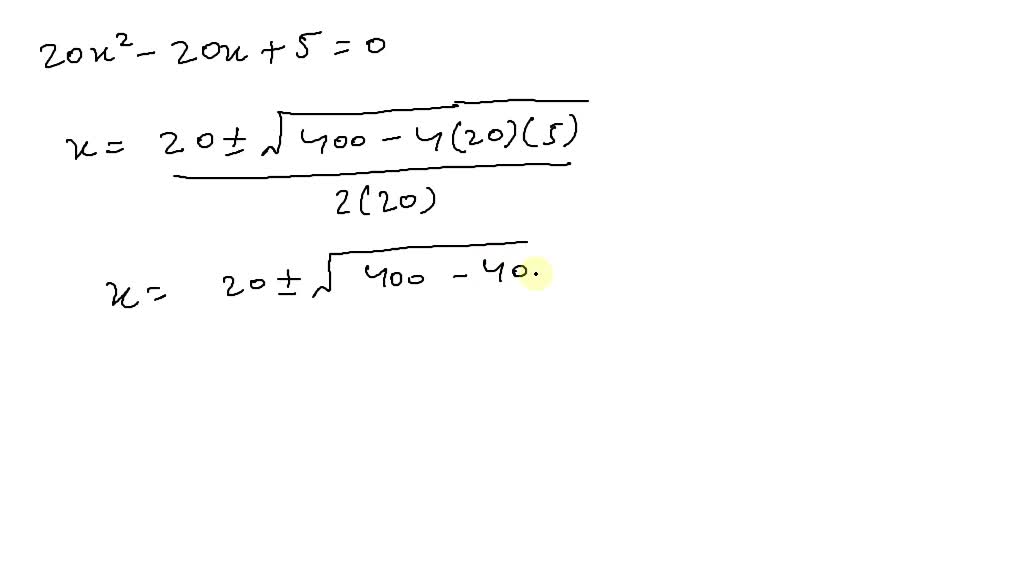 20x² - 20x + 5 = 0
x = 20 ± √400 - 4(20)(5)
2(20)
x = 20 ± √400 - 40.